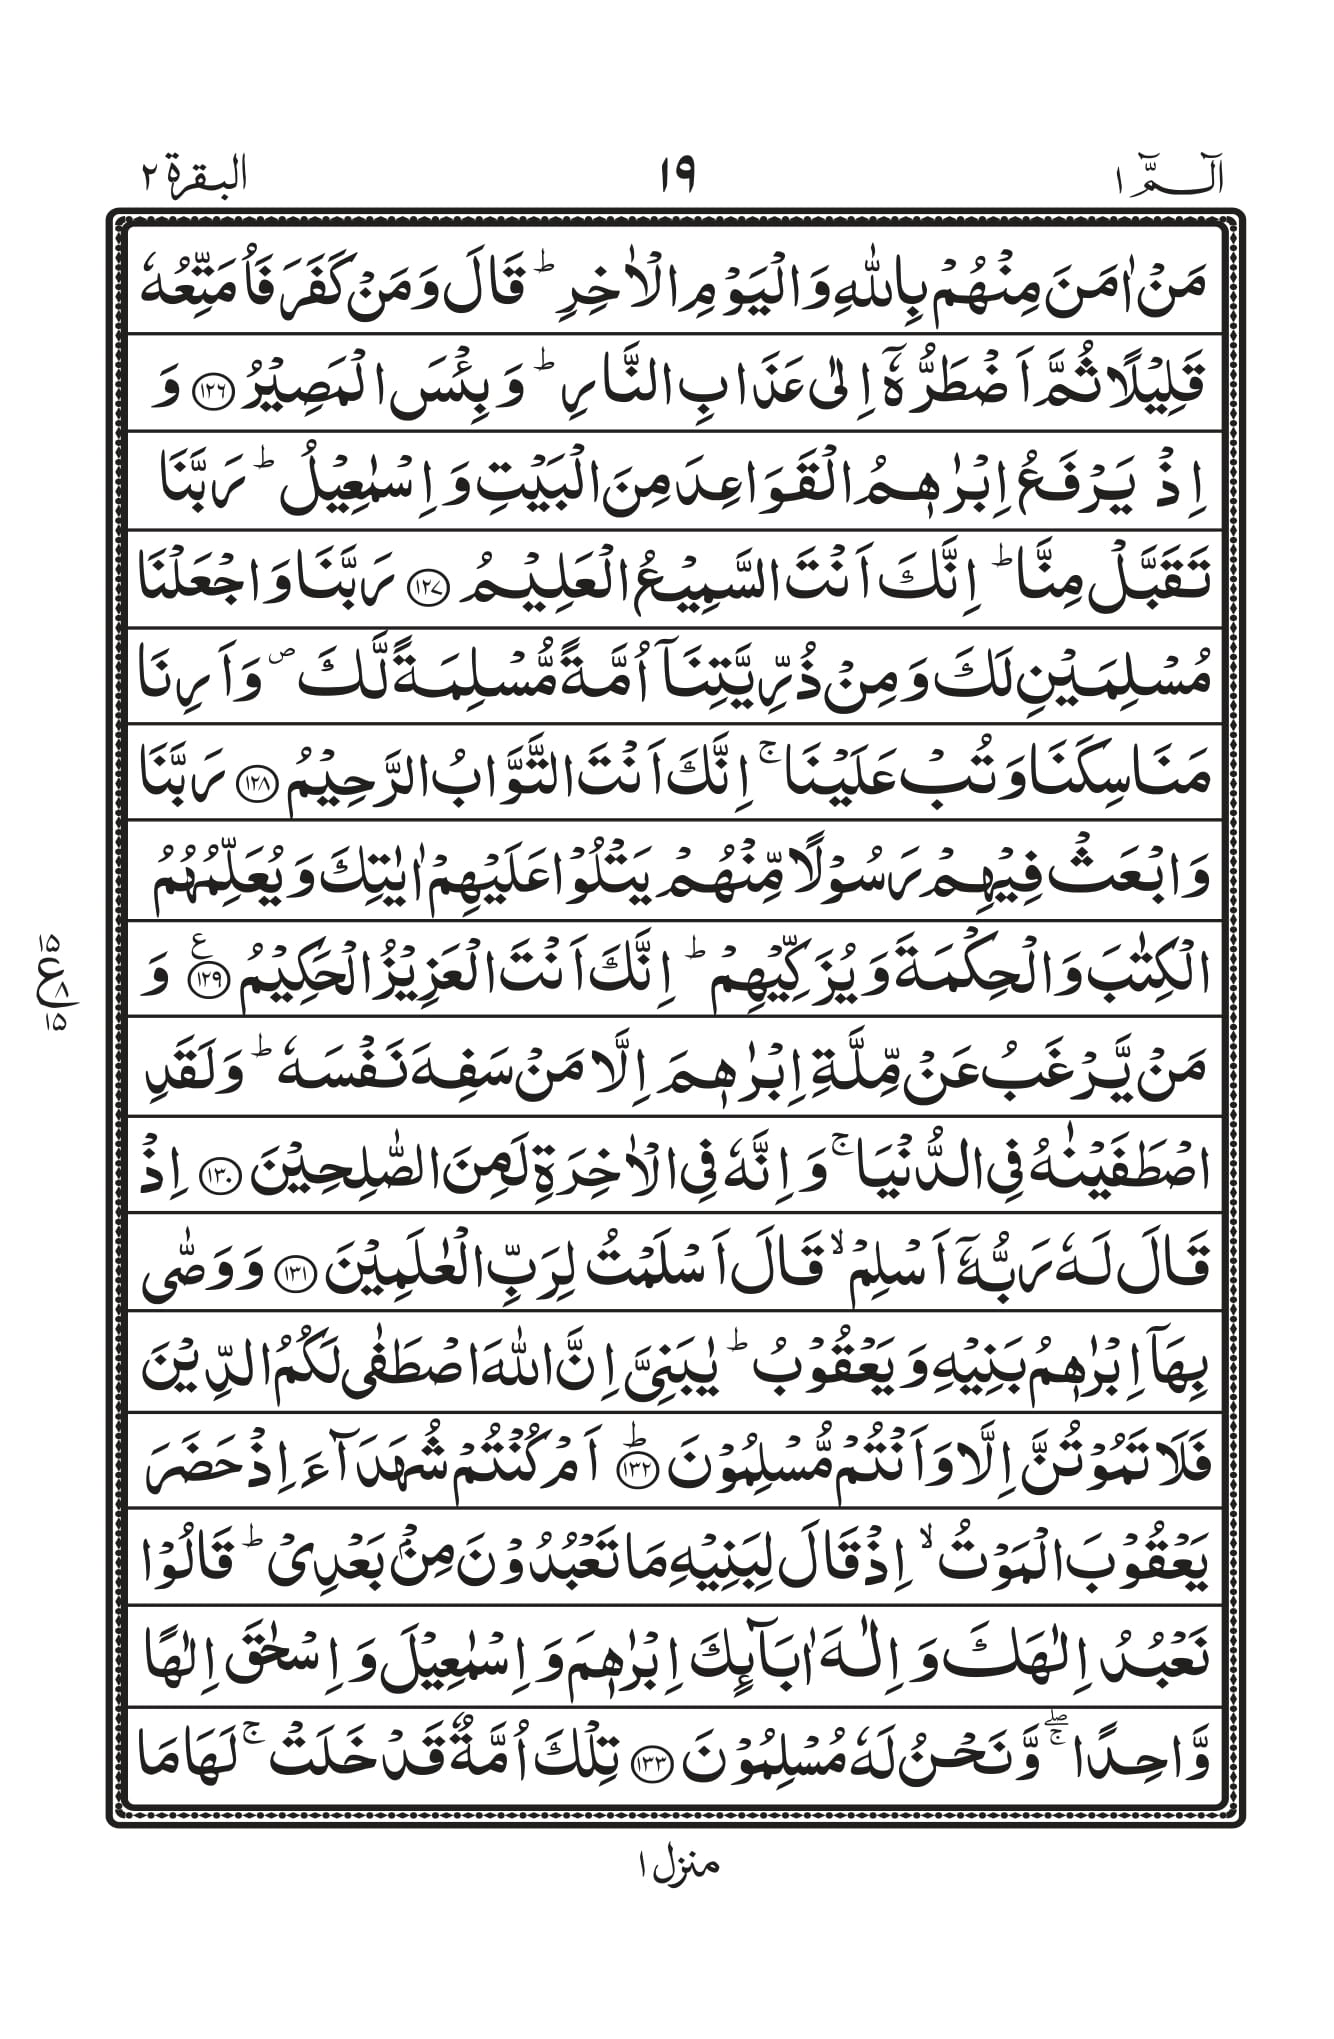 الٓمّٓ ١ ١٩ البقرة ٢
مَنْ اٰمَنَ مِنْهُمْ بِاللّٰهِ وَالْيَوْمِ الْاٰخِرِ ؕ قَالَ وَمَنْ كَفَرَ فَاُمَتِّعُهٗ
قَلِيْلًا ثُمَّ اَضْطَرُّهٗۤ اِلٰى عَذَابِ النَّارِ ؕ وَ بِئْسَ الْمَصِيْرُ ۝١٢٦ وَ
اِذْ يَرْفَعُ اِبْرٰهٖمُ الْقَوَاعِدَ مِنَ الْبَيْتِ وَ اِسْمٰعِيْلُ ؕ رَبَّنَا
تَقَبَّلْ مِنَّا ؕ اِنَّكَ اَنْتَ السَّمِيْعُ الْعَلِيْمُ ۝١٢٧ رَبَّنَا وَاجْعَلْنَا
مُسْلِمَيْنِ لَكَ وَمِنْ ذُرِّيَّتِنَاۤ اُمَّةً مُّسْلِمَةً لَّكَ ۪ وَاَرِنَا
مَنَاسِكَنَا وَتُبْ عَلَيْنَا ۚ اِنَّكَ اَنْتَ التَّوَّابُ الرَّحِيْمُ ۝١٢٨ رَبَّنَا
وَابْعَثْ فِيْهِمْ رَسُوْلًا مِّنْهُمْ يَتْلُوْا عَلَيْهِمْ اٰيٰتِكَ وَيُعَلِّمُهُمُ
الْكِتٰبَ وَالْحِكْمَةَ وَيُزَكِّيْهِمْ ؕ اِنَّكَ اَنْتَ الْعَزِيْزُ الْحَكِيْمُ ۝١٢٩ ع وَ
١٥ ع ٨ ١٥
مَنْ يَّرْغَبُ عَنْ مِّلَّةِ اِبْرٰهٖمَ اِلَّا مَنْ سَفِهَ نَفْسَهٗ ؕ وَلَقَدِ
اصْطَفَيْنٰهُ فِى الدُّنْيَا ۚ وَاِنَّهٗ فِى الْاٰخِرَةِ لَمِنَ الصّٰلِحِيْنَ ۝١٣٠ اِذْ
قَالَ لَهٗ رَبُّهٗۤ اَسْلِمْ ۙ قَالَ اَسْلَمْتُ لِرَبِّ الْعٰلَمِيْنَ ۝١٣١ وَوَصّٰى
بِهَاۤ اِبْرٰهٖمُ بَنِيْهِ وَيَعْقُوْبُ ؕ يٰبَنِىَّ اِنَّ اللّٰهَ اصْطَفٰى لَكُمُ الدِّيْنَ
فَلَا تَمُوْتُنَّ اِلَّا وَاَنْتُمْ مُّسْلِمُوْنَ ؕ ۝١٣٢ اَمْ كُنْتُمْ شُهَدَآءَ اِذْ حَضَرَ
يَعْقُوْبَ الْمَوْتُ ۙ اِذْ قَالَ لِبَنِيْهِ مَا تَعْبُدُوْنَ مِنْۢ بَعْدِىْ ؕ قَالُوْا
نَعْبُدُ اِلٰهَكَ وَاِلٰهَ اٰبَآئِكَ اِبْرٰهٖمَ وَاِسْمٰعِيْلَ وَاِسْحٰقَ اِلٰهًا
وَّاحِدًا ۖۚ وَّنَحْنُ لَهٗ مُسْلِمُوْنَ ۝١٣٣ تِلْكَ اُمَّةٌ قَدْ خَلَتْ ۚ لَهَا مَا
منزل ١